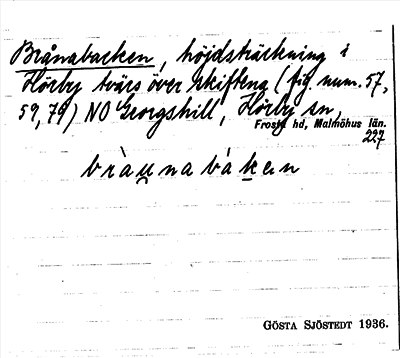 Brånabacken, höjdsträckning i
Hörby tvärs över skiftena (fig. num. 57,
59, 79) NO Georgshill, Hörby sn,
Frosta hd, Malmöhus län.
227
bràu̯nabàken
GÖSTA SJÖSTEDT 1936.